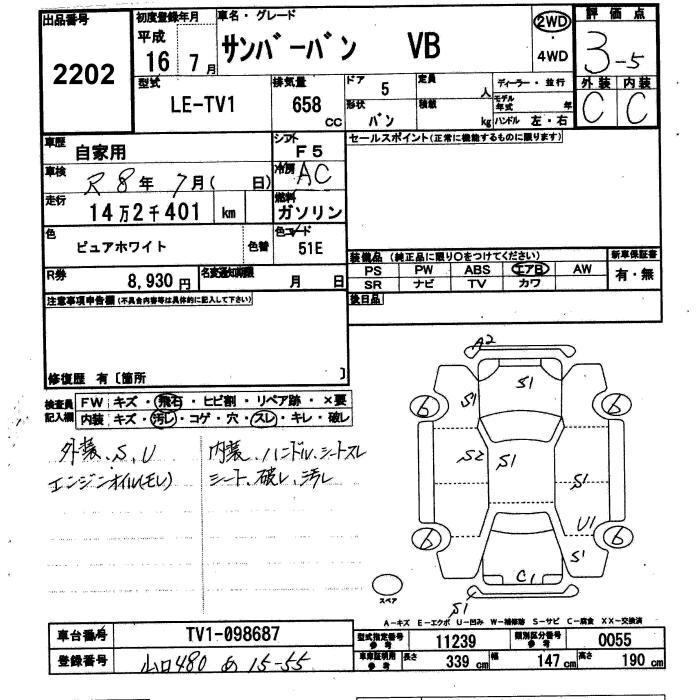 出品番号
2202
初度登録年月
平成
16 7月
車名・グレード
サンバーバン VB
2WD
・
4WD
評価点
3-5
外装 内装
C C
型式
LE-TV1
排気量
658 CC
ドア
5
形状
バン
定員
人
積載
kg
ディーラー・並行
モデル年式 年
ハンドル 左・右
車歴
自家用
シフト
F5
車検
R8年 7月( 日)
冷房
AC
走行
14万2千401 km
燃料
ガソリン
色
ピュアホワイト
色替
色コード
51E
R券
8,930円
名変通知期限
月 日
セールスポイント(正常に機能するものに限ります)
装備品 (純正品に限り○をつけてください)
PS PW ABS エアB AW
SR ナビ TV カワ
新車保証書
有・無
後日品
注意事項申告欄(不具合内容等は具体的に記入して下さい)
修復歴 有〔箇所 〕
検査員
記入欄
FW キズ・飛石・ヒビ割・リペア跡・×要
内装 キズ・汚レ・コゲ・穴・スレ・キレ・破レ
外装、S、U
エンジンオイル(モレ)
内装、ハンドル、シートスレ
シート、破レ、汚レ
A2
S1
S1
6
6
S2
S1
S1
U1
6
6
S1
C1
S1
スペア
A-キズ E-エクボ U-凹み W-補修跡 S-サビ C-腐食 XX-交換済
車台番号
TV1-098687
登録番号
山口480 あ 15-55
型式指定番号
参考
11239
類別区分番号
参考
0055
車庫証明用
参考
長さ 339 cm 幅 147 cm 高さ 190 cm